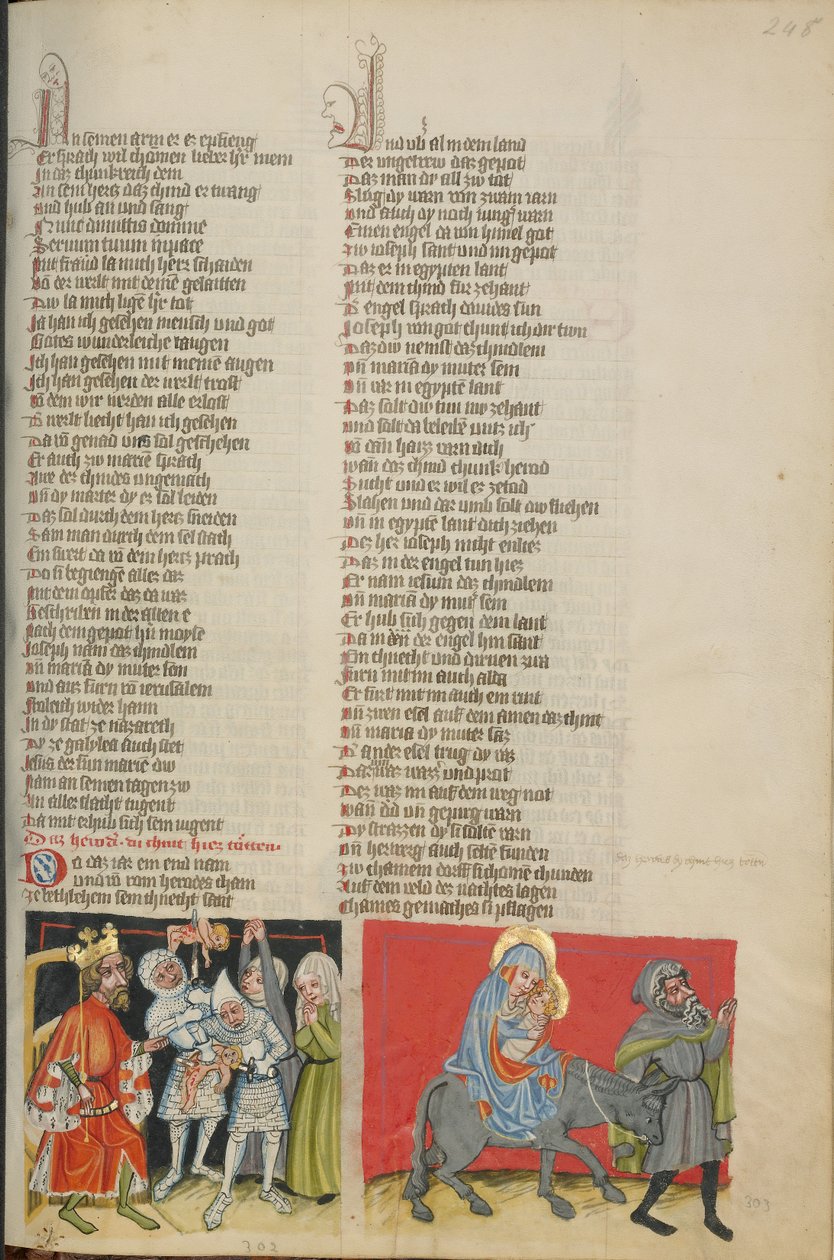 248
In seinen arm er er enpfieng
Er sprach wil chomen lieber h'r mein
In daz chunkreich dein
An sein hertz daz chind er twang
und hub an und sang
Nunc dimittis domine
Servum tuum in pace
Mit fraud la mich herr schaiden
vō der werlt mit deinē gelaitten
Dw la mich ligē h'r tot
Ja han ich gesehen mensch und got
Gotes wunderleiche taugen
Ich han gesehen mit meinē augen
Ich han gesehen der werlt trost
vō dem wir werden alle erlost
D' werlt liecht han ich gesehen
Da vō genad uns sol geschehen
Er auch zw mariē sprach
Awe der chindes ungemach
vn̄ dy marter dy er sol leiden
Daz sol durch dein hertz sneiden
Sam man durch dein sel stach
Ein swert da vō dein hertz prach
Do si begiengē allez daz
Mit dem opfer daz da waz
Beschriben in der alten e
Nach dem gepot h'n moyse
Joseph nam daz chindlein
vn̄ mariā dy muter sein
und auz furn vō ierusalem
Froleich wider haim
In dy stat ze nazareth
Dy ze galylea auch stet
Jesus der sun mariē dw
Nam an seinen tagen zw
An aller slacht tugent
Da mit erhub sich sein iugent
Daz herod' di chint hiez tötten.
Do daz iar ein end nam
und vō rom herodes cham
Ze bethlehem sein chnecht sant
Und vb' al in dem land
Der ungetrew daz gepot
Daz man dy all zw tot
Slug dy warn von zwain iarn
und auch dy noch iung' warn
Einen engel da von himel got
Zw ioseph sant und im gepot
Daz er in egypten lant
Mit dem chind für zehant
D' engel sprach dauides sun
Joseph von got chunt ich dir tun
Daz dw nemst daz chindlein
vn̄ mariā dy muter sein
vn̄ var in egyptē lant
Daz solt dw tun nw zehant
und solt da beleibē untz ich
vō dān haizz varn dich
wan daz chind chunk herod
Sucht und er wil ez ze tod
Slahen und dar umb solt dw fliehen
vn̄ in egyptē lant dich ziehen
Dez her ioseph nicht enliez
Daz in der engel tun hiez
Er nam iesum daz chindlein
vn̄ mariā dy mut' sein
Er hub sich gegen dem lant
Da in der engel hin sant
Ein chnecht und dirnen zwa
Furn mit im auch alda
Er furt mit im auch ein rint
vn̄ zwen esel auf dem ainen daz chint
vn̄ maria dy muter saz
D' ander esel trug dy vaz
Dar waz wazz' und prot
Dez waz im auf dem weg not
wan̄ dw vn̄ gepirg warn
Dy strazzen dy si soltē varn
vn̄ herwerg auch seltē funden
Zw chainem dorff si chomē chunden
Auf dem veld des nachtes lagen
Chames gemaches si pflagen
daz herodes dy chint hiez toten
302
303